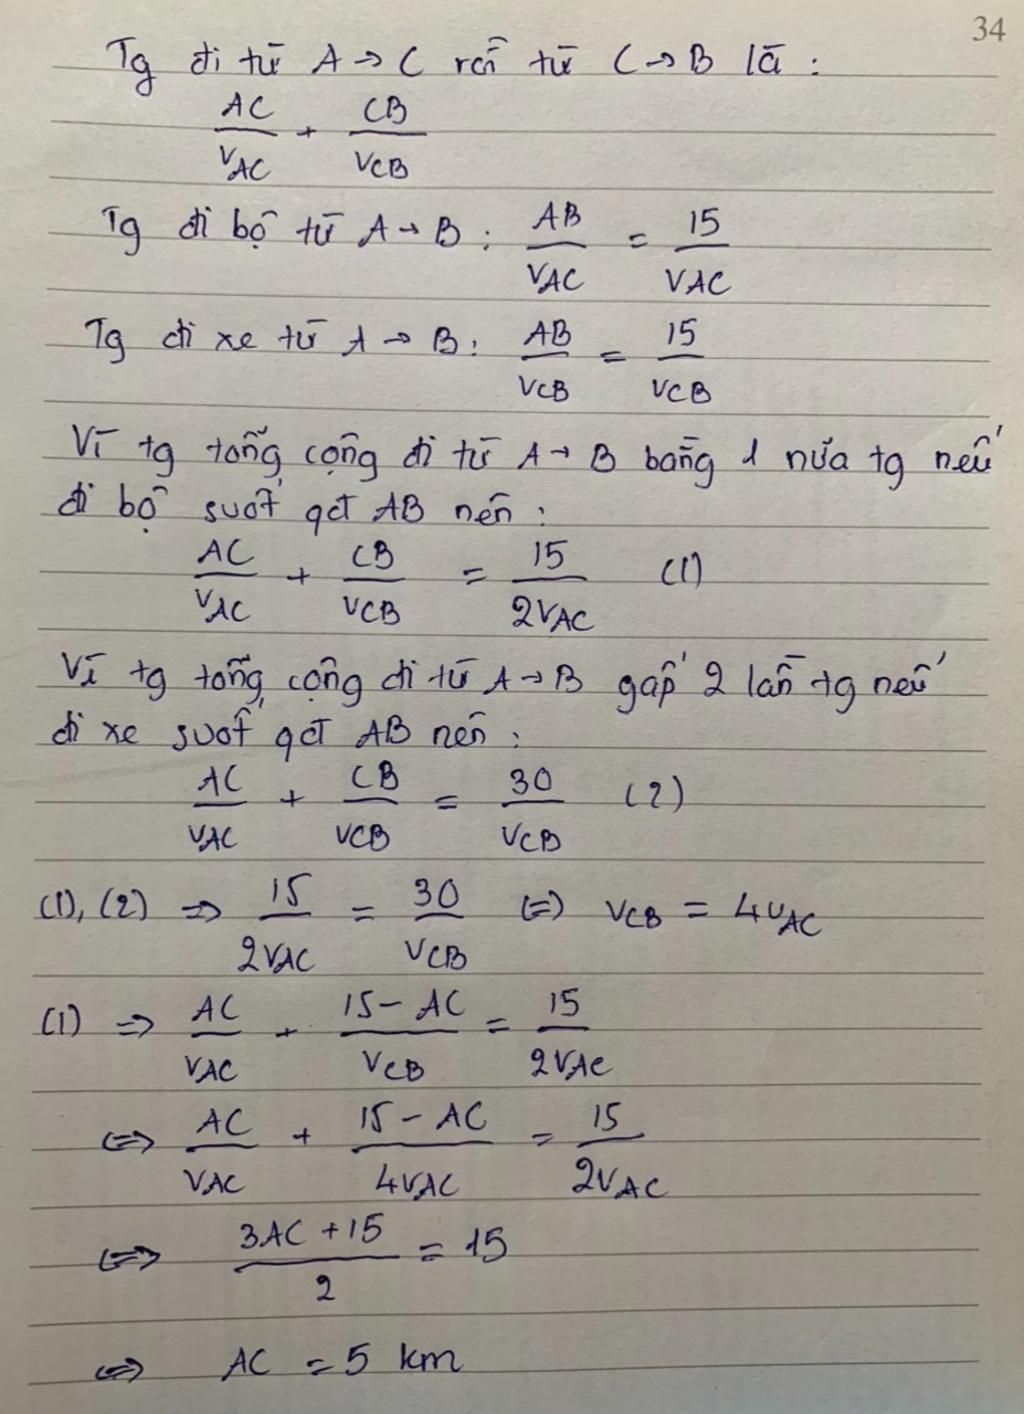 34
Tg đi từ A → C rồi từ C → B là :
AC/VAC + CB/VCB
Tg đi bộ từ A → B : AB/VAC = 15/VAC
Tg đi xe từ A → B : AB/VCB = 15/VCB
Vì tg tổng cộng đi từ A → B bằng 1 nửa tg nếu
đi bộ suốt qđ AB nên :
AC/VAC + CB/VCB = 15/2VAC (1)
Vì tg tổng cộng đi từ A → B gấp 2 lần tg nếu
đi xe suốt qđ AB nên :
AC/VAC + CB/VCB = 30/VCB (2)
(1), (2) => 15/2VAC = 30/VCB (=) VCB = 4VAC
(1) => AC/VAC + 15 - AC/VCB = 15/2VAC
<=> AC/VAC + 15 - AC/4VAC = 15/2VAC
<=> 3AC + 15/2 = 15
<=> AC = 5 km